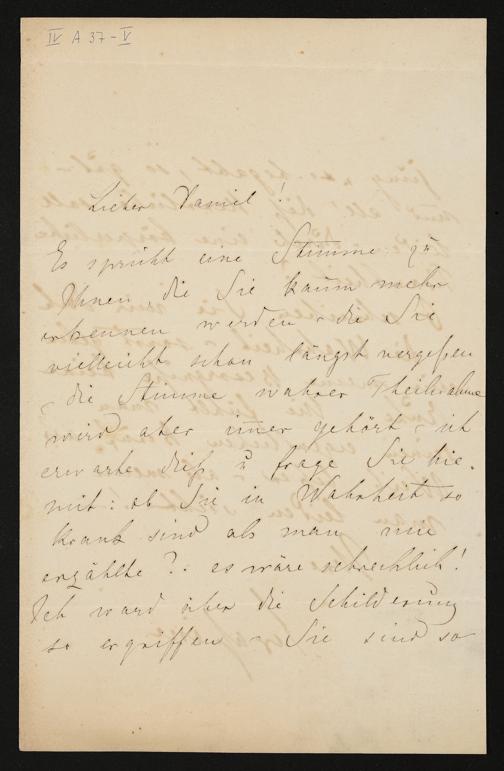 IV A 37 - V
Lieber Daniel!
Es spricht eine Stimme zu
Ihnen, die Sie kaum mehr
erkennen werden - die Sie
vielleicht schon längst vergeßen
- die Stimme wahrer Theilnahme
wird aber immer gehört - ich
erwarte dieß u frage Sie hie-
mit: ob Sie in Wahrheit so
krank sind als man mir
erzählte? : es wäre schrecklich!
Ich ward über die Schilderung
so ergriffen - Sie sind so